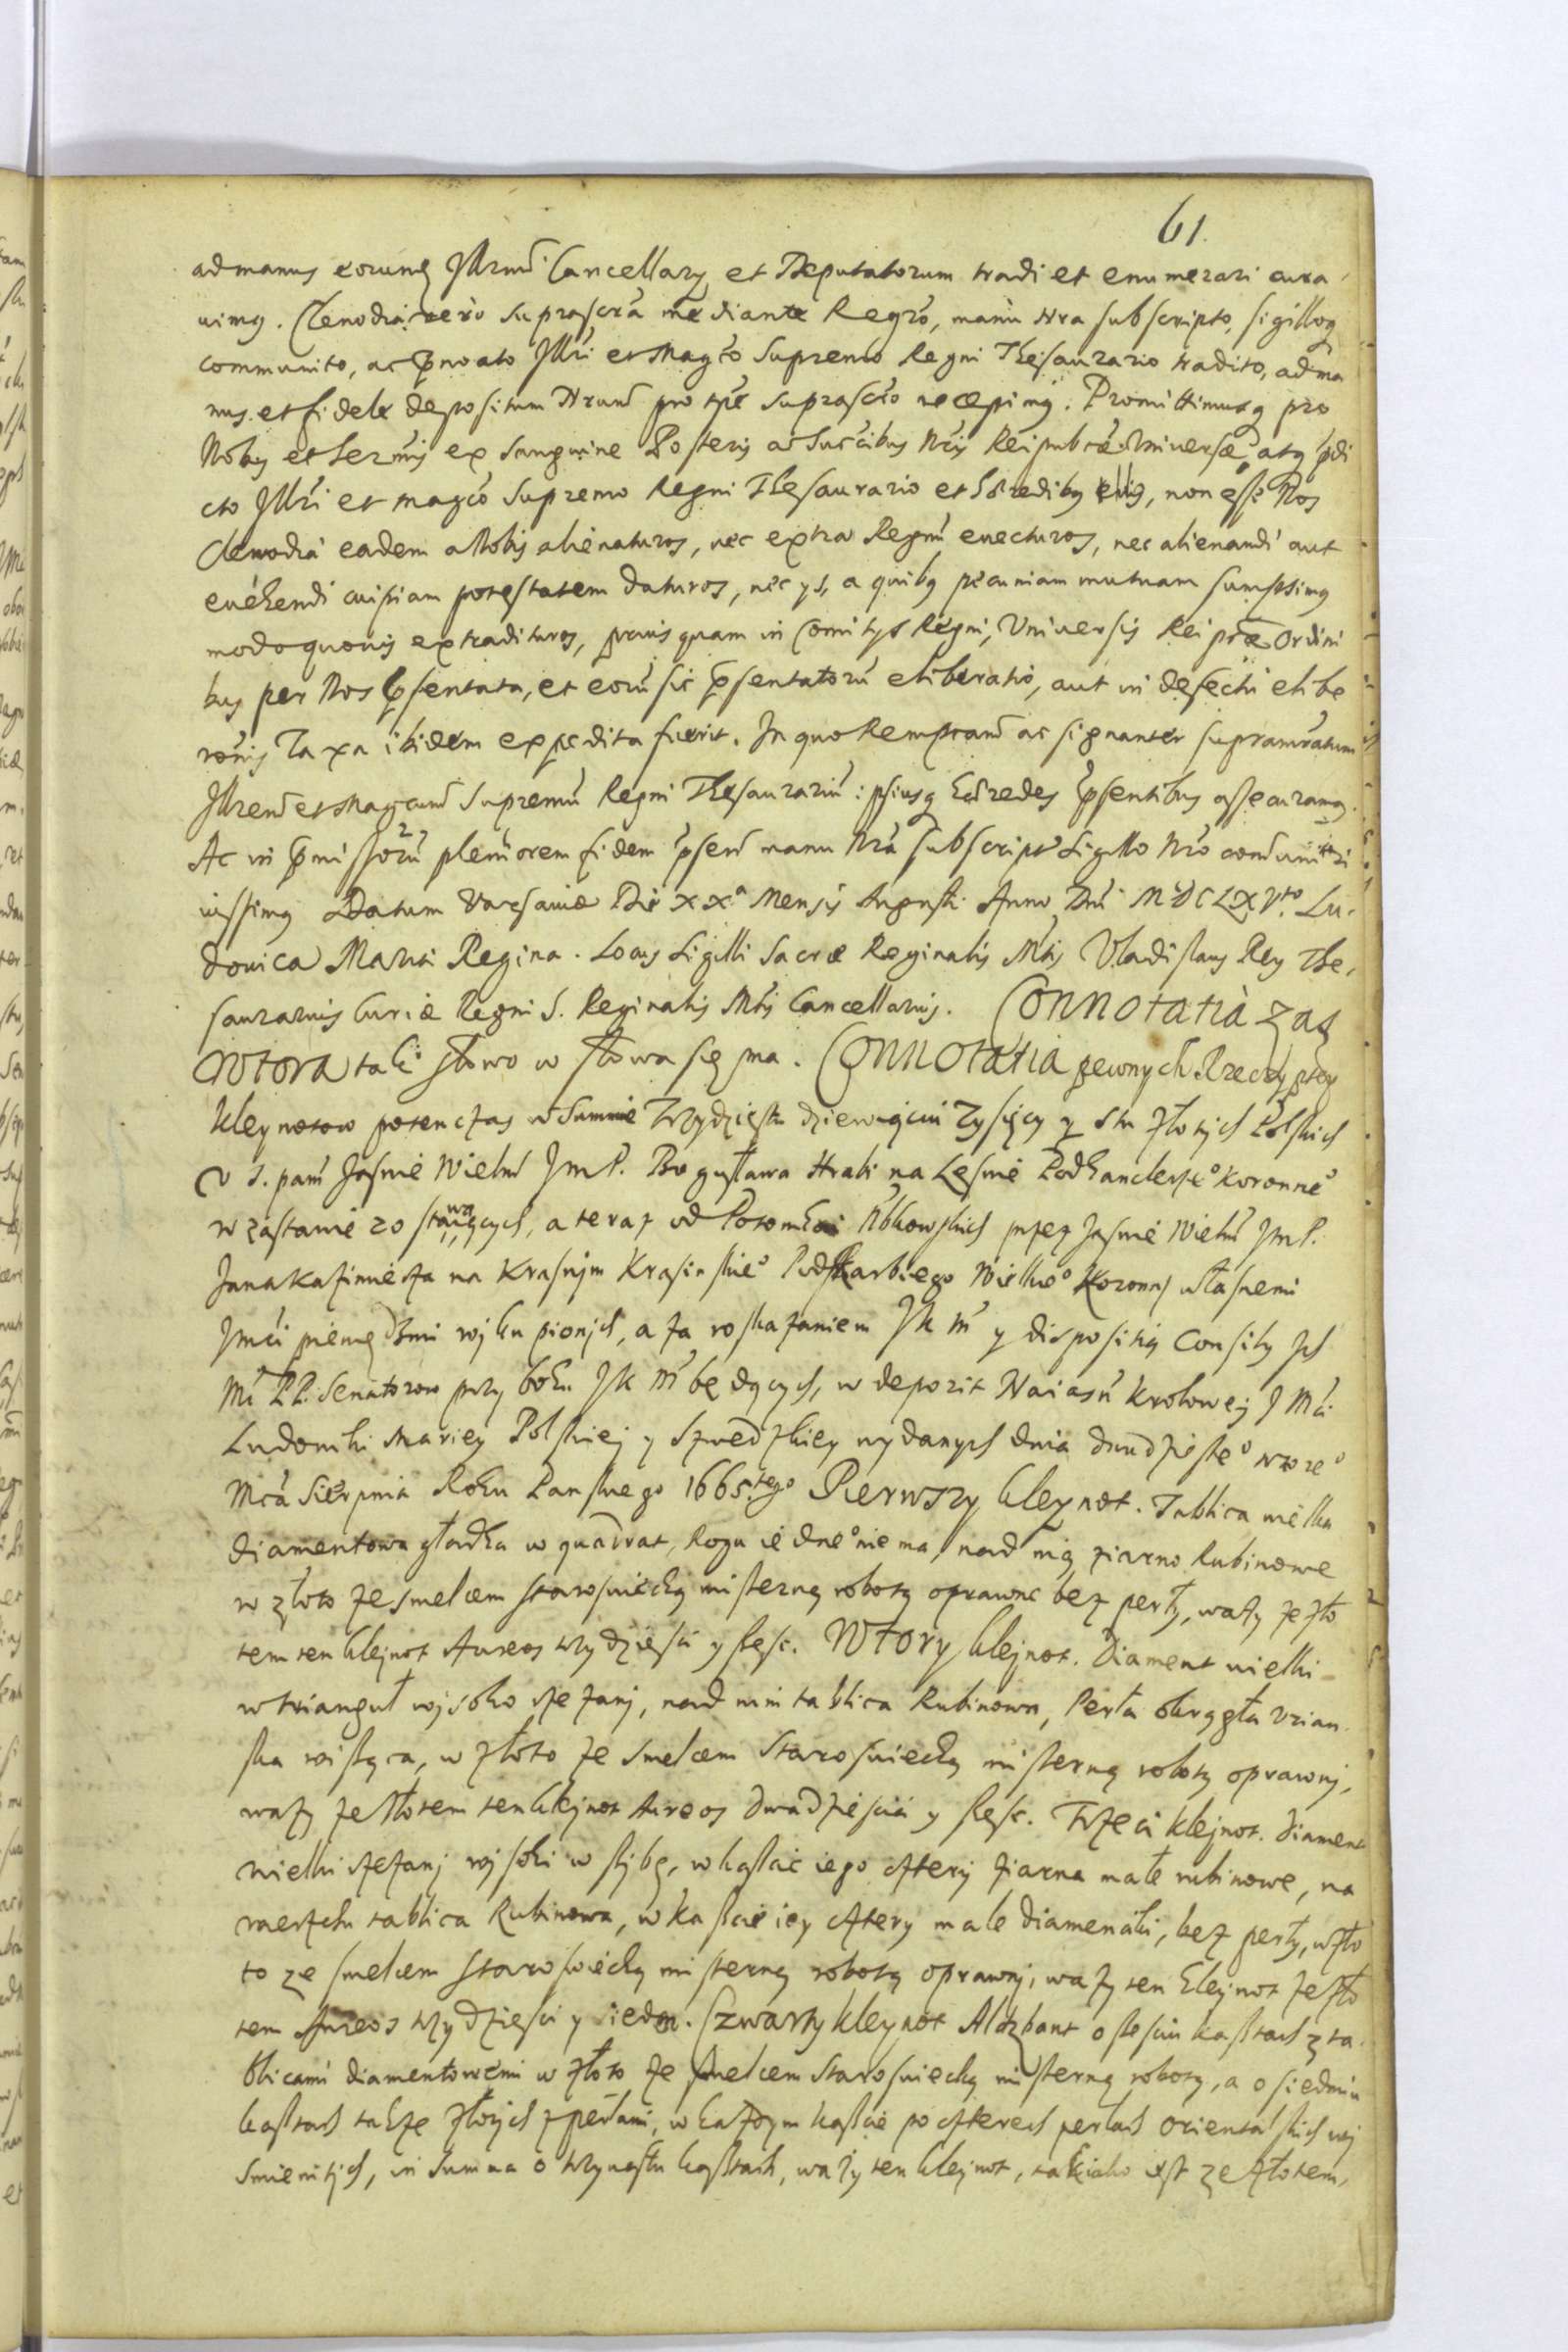 61.
ad manus eorund Illrmi Cancellary et Deputatorum tradi et enumerari cura
uimq. Clenodia vero suprascra mediante Regro, manu Nra subscripto, sigilloq
communito, ac Illri et Magco Supremo Regni Thesaurario tradito, ad ma
nus et fidele depositum Nrum pro tpe suprascto recepimq. Promittimusq pro
Nobis et Sermis ex sanguine Posteris ac Succibus Nris Reipubcae Universae, atq pdi
cto Illri et magco Supremo Regni Thesaurario et Haeredibq eius, non esse Nos
Clenodia eadem a Nobis alienaturos, nec extra Regnu euecturos, nec alienandi aut
euehendi cuipiam potestatem daturos, nec ys, a quibq pecuniam mutuam sumpsimq
modo quouis extradituros, prius quam in Comitys Regni, Universis Rei pcae Ordini
bus per Nos psentata, et eoru sic psentatoru eliberatio, aut in defectu elibe
ronis Taxa ibidem expedita fuerit. In quo Rempcam ac signanter supranratum
Illrem et Magcum Supremu Regni Thesaurariu ipsiusq Haeredes psentibus assecuramq.
Ac in pmissoru pleniorem fidem psens manu Nra subscripto Sigillo Nro communiri
iussimq Datum Varsaviae Die XXa Mensis Augusti Anno Dni MDCLXVto. Lu-
dovica Maria Regina. Locus Sigilli Sacrae Reginalis Mtis Vladislaus Rey The
saurarius Curiae Regni S. Reginalis Mtis Cancellarius. Connotatia zas
wtora tak słowo w słowa się ma. Connotatia pewnych Rzeczyptey
kleynotow potenczas w Summie Trzydziestu dziewiąciu Tysięcy y stu złotych Polskich
v s. pami Jasnie Wielm JmP. Bogusława Hrabi na Lesnie Podkanclerzeo Koronneo
w zastawie zostawaiących, a teraz od Potomkow przez Jasnie Wielm JmP.
Jana Kazimierza na Krasnym Krasinskieo Podskarbiego Wielkieo Koronny własnemi
Jmci pieniędzmi wykupionych, a za roskazaniem JK M y dispositią Consily Jch
Mci PP. Senatorow przy boku JK M będących, w depozit Naiasn Krolowey J Mci
Ludowiki Mariey Polskiej y Szwedzkiey wydanych dnia dwudziesteo wtoreo
Mca Sierpnia Roku Panskiego 1665tego Pierwszy kleynot. Tablica wielka
diamentowa gładka w quadrat, Rogu iedneo niema, nad nią ziarno Rubinowe
w złoto ze smelcem staroswiecką misterną robotą oprawne bez perły, waży ze zło
tem ten klejnot Aureos trzydziesci y szesc. Wtory klejnot. Diament wielki
w trianguł wysoko rzezany, nad nim tablica Rubinowa, Perła okrągła Vrian
ska wisząca, w złoto ze smelcem staroswiecką misterną robotą oprawny,
waży ze złotem ten klejnot Aureos dwadziescia y szesc. Trzeci klejnot. Diament
wielki rzezany wysoki w szybę, w kaszcie iego cztery ziarna małe rubinowe, na
wierzchu tablica Rubinowa, w kaszcie iey cztery małe diamenciki, bez perły, w zło
to ze smelcem staroswiecką misterną robotą oprawny, waży ten klejnot ze zło
tem Aureos trzydziesci y siedm. Czwarty kleynot Alszbant o szesciu kasztach z ta
blicami diamentowemi w złoto ze smelcem staroswiecką misterną robotą, a o siedmiu
kasztach takze złotych z perłami, w kazdym kaszcie po czterech perłach orientalskich wy
smienitych, in summa o trzynastu kasztach, waży ten klejnot, tak iako iest ze złotem,